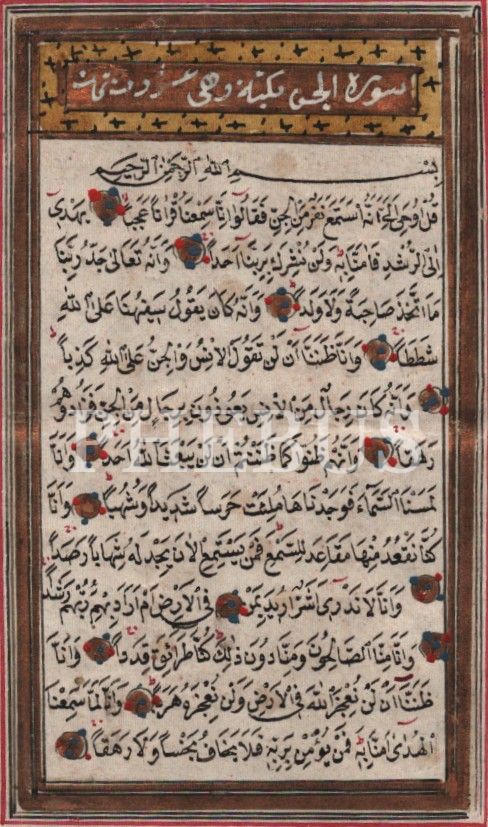 سورة الجن مكية وهى عشرون وثمان
بِسْمِ اللهِ الرَّحْمٰنِ الرَّحِيمِ
قُلْ اُوحِىَ اِلَىَّ اَنَّهُ اسْتَمَعَ نَفَرٌ مِنَ الْجِنِّ فَقَالُوا اِنَّا سَمِعْنَا قُرْاٰنًا عَجَبًا يَهْدِى
اِلَى الرُّشْدِ فَاٰمَنَّا بِهِ وَلَنْ نُشْرِكَ بِرَبِّنَا اَحَدًا وَاَنَّهُ تَعَالٰى جَدُّ رَبِّنَا
مَا اتَّخَذَ صَاحِبَةً وَلَا وَلَدًا وَاَنَّهُ كَانَ يَقُولُ سَفِيهُنَا عَلَى اللهِ
شَطَطًا وَاَنَّا ظَنَنَّا اَنْ لَنْ تَقُولَ الْاِنْسُ وَالْجِنُّ عَلَى اللهِ كَذِبًا
وَاَنَّهُ كَانَ رِجَالٌ مِنَ الْاِنْسِ يَعُوذُونَ بِرِجَالٍ مِنَ الْجِنِّ فَزَادُوهُمْ
رَهَقًا وَاَنَّهُمْ ظَنُّوا كَمَا ظَنَنْتُمْ اَنْ لَنْ يَبْعَثَ اللهُ اَحَدًا وَاَنَّا
PHEBUS
لَمَسْنَا السَّمَاءَ فَوَجَدْنَاهَا مُلِئَتْ حَرَسًا شَدِيدًا وَشُهُبًا وَاَنَّا
كُنَّا نَقْعُدُ مِنْهَا مَقَاعِدَ لِلسَّمْعِ فَمَنْ يَسْتَمِعِ الْاٰنَ يَجِدْ لَهُ شِهَابًا رَصَدًا
وَاَنَّا لَا نَدْرِى اَشَرٌّ اُرِيدَ بِمَنْ فِى الْاَرْضِ اَمْ اَرَادَ بِهِمْ رَبُّهُمْ رَشَدًا
وَاَنَّا مِنَّا الصَّالِحُونَ وَمِنَّا دُونَ ذٰلِكَ كُنَّا طَرَائِقَ قِدَدًا وَاَنَّا
ظَنَنَّا اَنْ لَنْ نُعْجِزَ اللهَ فِى الْاَرْضِ وَلَنْ نُعْجِزَهُ هَرَبًا وَاَنَّا لَمَّا سَمِعْنَا
الْهُدٰى اٰمَنَّا بِهِ فَمَنْ يُؤْمِنْ بِرَبِّهِ فَلَا يَخَافُ بَخْسًا وَلَا رَهَقًا